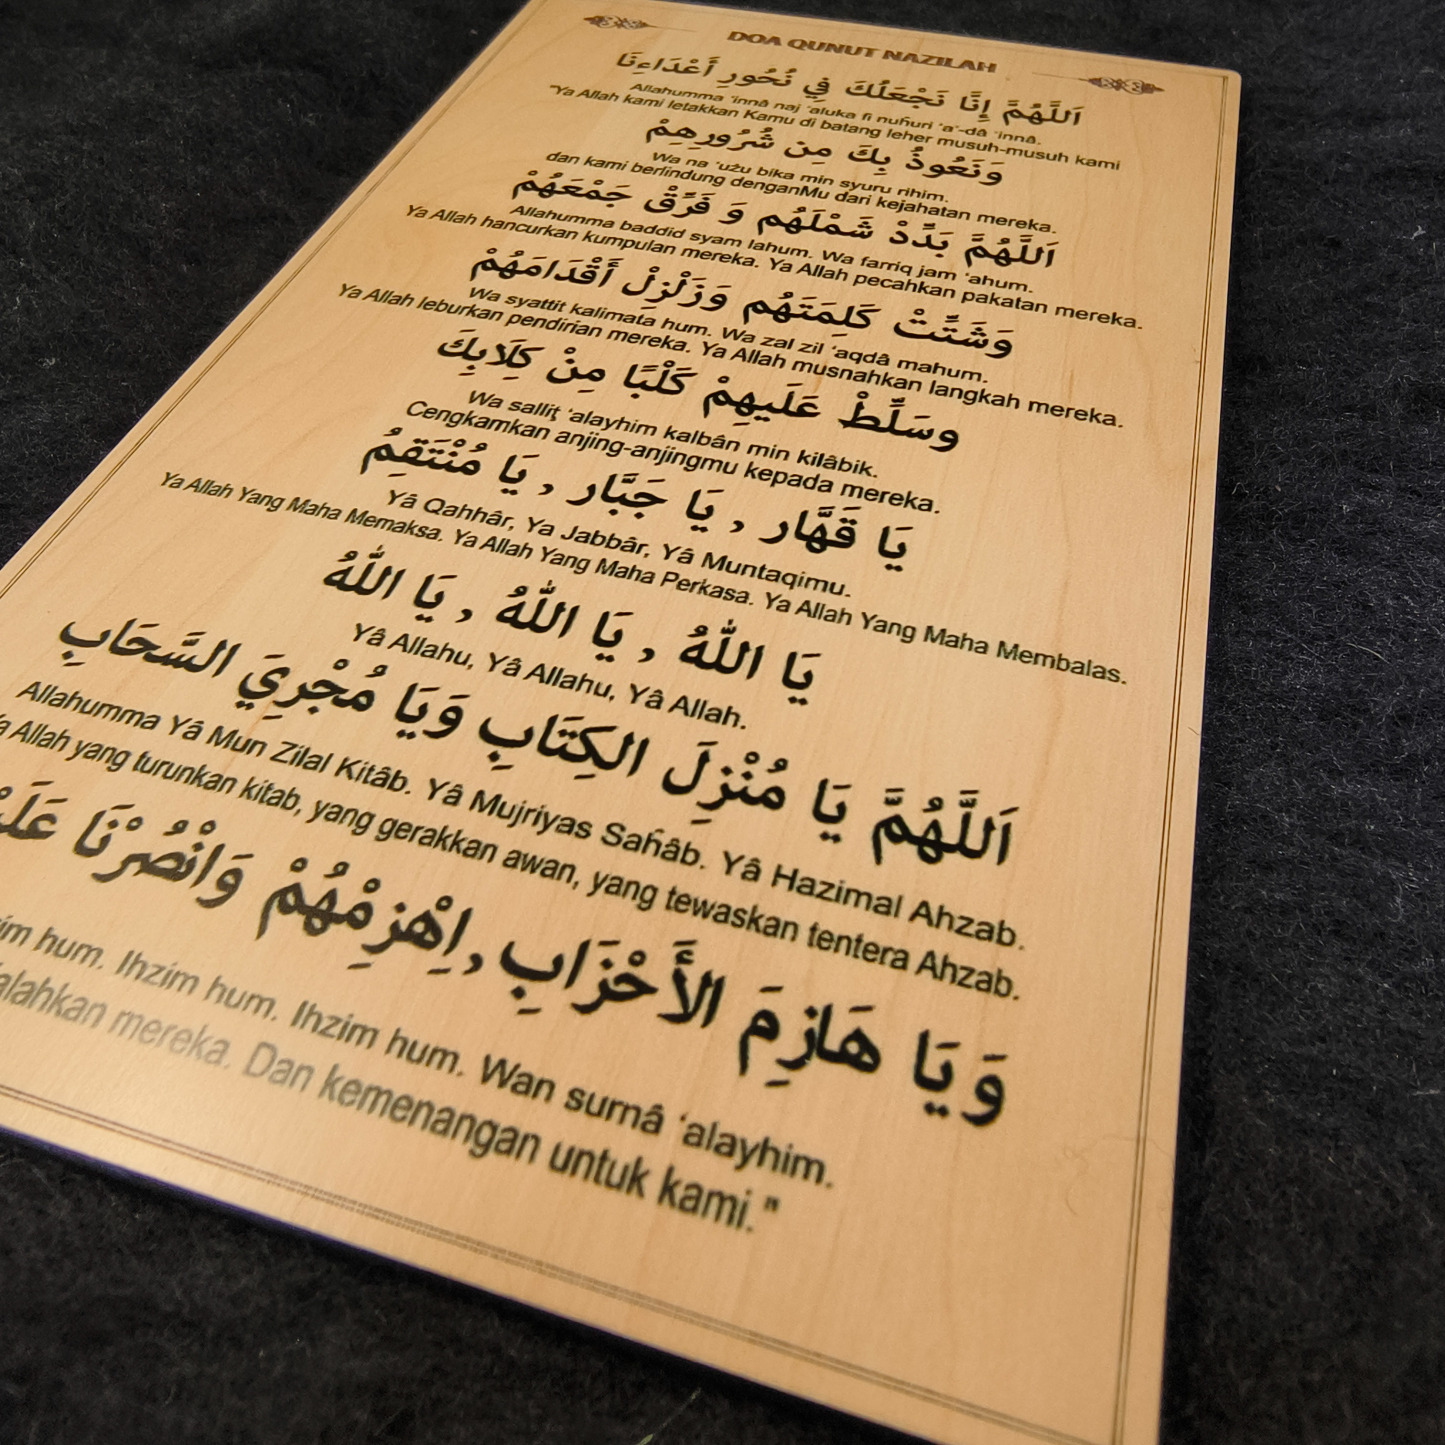 DOA QUNUT NAZILAH
اَللَّهُمَّ إِنَّا نَجْعَلُكَ فِي نُحُورِ أَعْدَاءِنَا
Allahumma 'innâ naj 'aluka fi nuĥuri 'a'-dâ 'innâ.
"Ya Allah kami letakkan Kamu di batang leher musuh-musuh kami
وَنَعُوذُ بِكَ مِن شُرُورِهِمْ
Wa na 'užu bika min syuru rihim.
dan kami berlindung denganMu dari kejahatan mereka.
اَللَّهُمَّ بَدِّدْ شَمْلَهُم وَ فَرِّقْ جَمْعَهُمْ
Allahumma baddid syam lahum. Wa farriq jam 'ahum.
Ya Allah hancurkan kumpulan mereka. Ya Allah pecahkan pakatan mereka.
وَشَتِّتْ كَلِمَتَهُم وَزَلْزِلْ أَقْدَامَهُمْ
Wa syattit kalimata hum. Wa zal zil 'aqdâ mahum.
Ya Allah leburkan pendirian mereka. Ya Allah musnahkan langkah mereka.
وسَلِّطْ عَلَيهِمْ كَلْبًا مِنْ كِلَابِكَ
Wa salliţ 'alayhim kalbân min kilâbik.
Cengkamkan anjing-anjingmu kepada mereka.
يَا قَهَّار , يَا جَبَّار , يَا مُنْتَقِمُ
Yâ Qahhâr, Ya Jabbâr, Yâ Muntaqimu.
Ya Allah Yang Maha Memaksa. Ya Allah Yang Maha Perkasa. Ya Allah Yang Maha Membalas.
يَا اللّٰهُ , يَا اللّٰهُ , يَا اللّٰهُ
Yâ Allahu, Yâ Allahu, Yâ Allah.
اَللَّهُمَّ يَا مُنْزِلَ الكِتَابِ وَيَا مُجْرِيَ السَّحَابِ
Allahumma Yâ Mun Zilal Kitâb. Yâ Mujriyas Saĥâb. Yâ Hazimal Ahzab.
Allah yang turunkan kitab, yang gerakkan awan, yang tewaskan tentera Ahzab.
وَيَا هَازِمَ الأَحْزَابِ , اِهْزِمْهُمْ وَانْصُرْنَا
hum. Ihzim hum. Ihzim hum. Wan surnâ 'alayhim.
mereka. Dan kemenangan untuk kami."